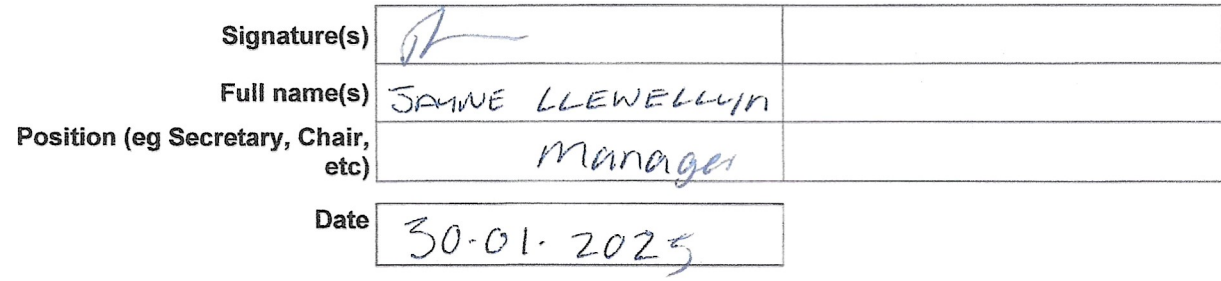 Signature(s)
Full name(s) JAYNE LLEWELLyn
Position (eg Secretary, Chair,
etc) Manager
Date 30.01.2025